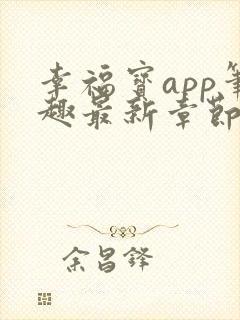 幸福寳app筆
趣最新章節
余昌鋒